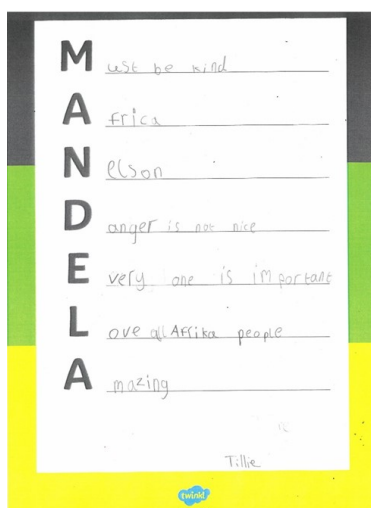 Must be kind
Africa
Nelson
Danger is not nice
Every one is important
Love all Afrika people
Amazing
Tillie
twinkl